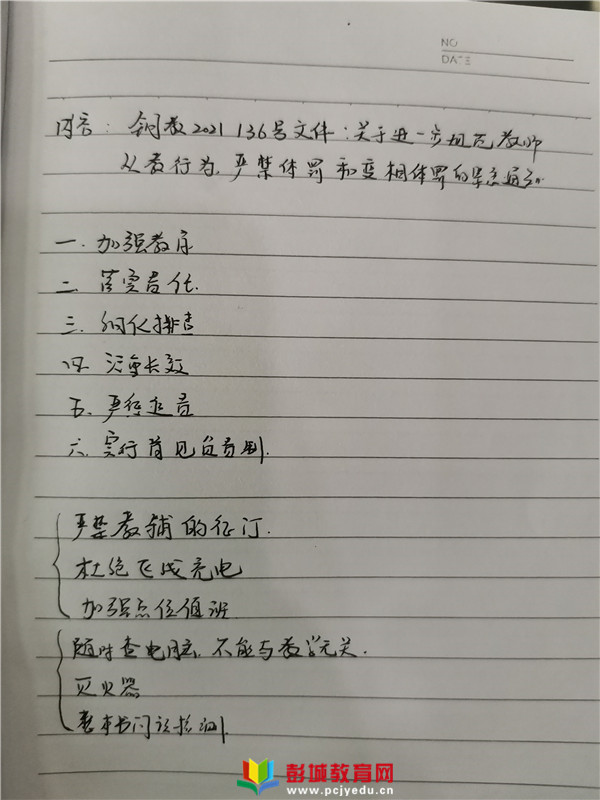 NO
DATE
内容：铜教2021 136号文件：关于进一步规范教师
从教行为，严禁体罚和变相体罚的紧急通知
一. 加强教育
二. 落实责任.
三. 细化排查
四. 注重长效
五. 严格追责
六. 实行首见负责制.
严禁教辅的征订.
杜绝飞线充电
加强点位值班
随时查电脑，不能与教学无关.
灭火器
彭城教育网
www.pcjyedu.cn